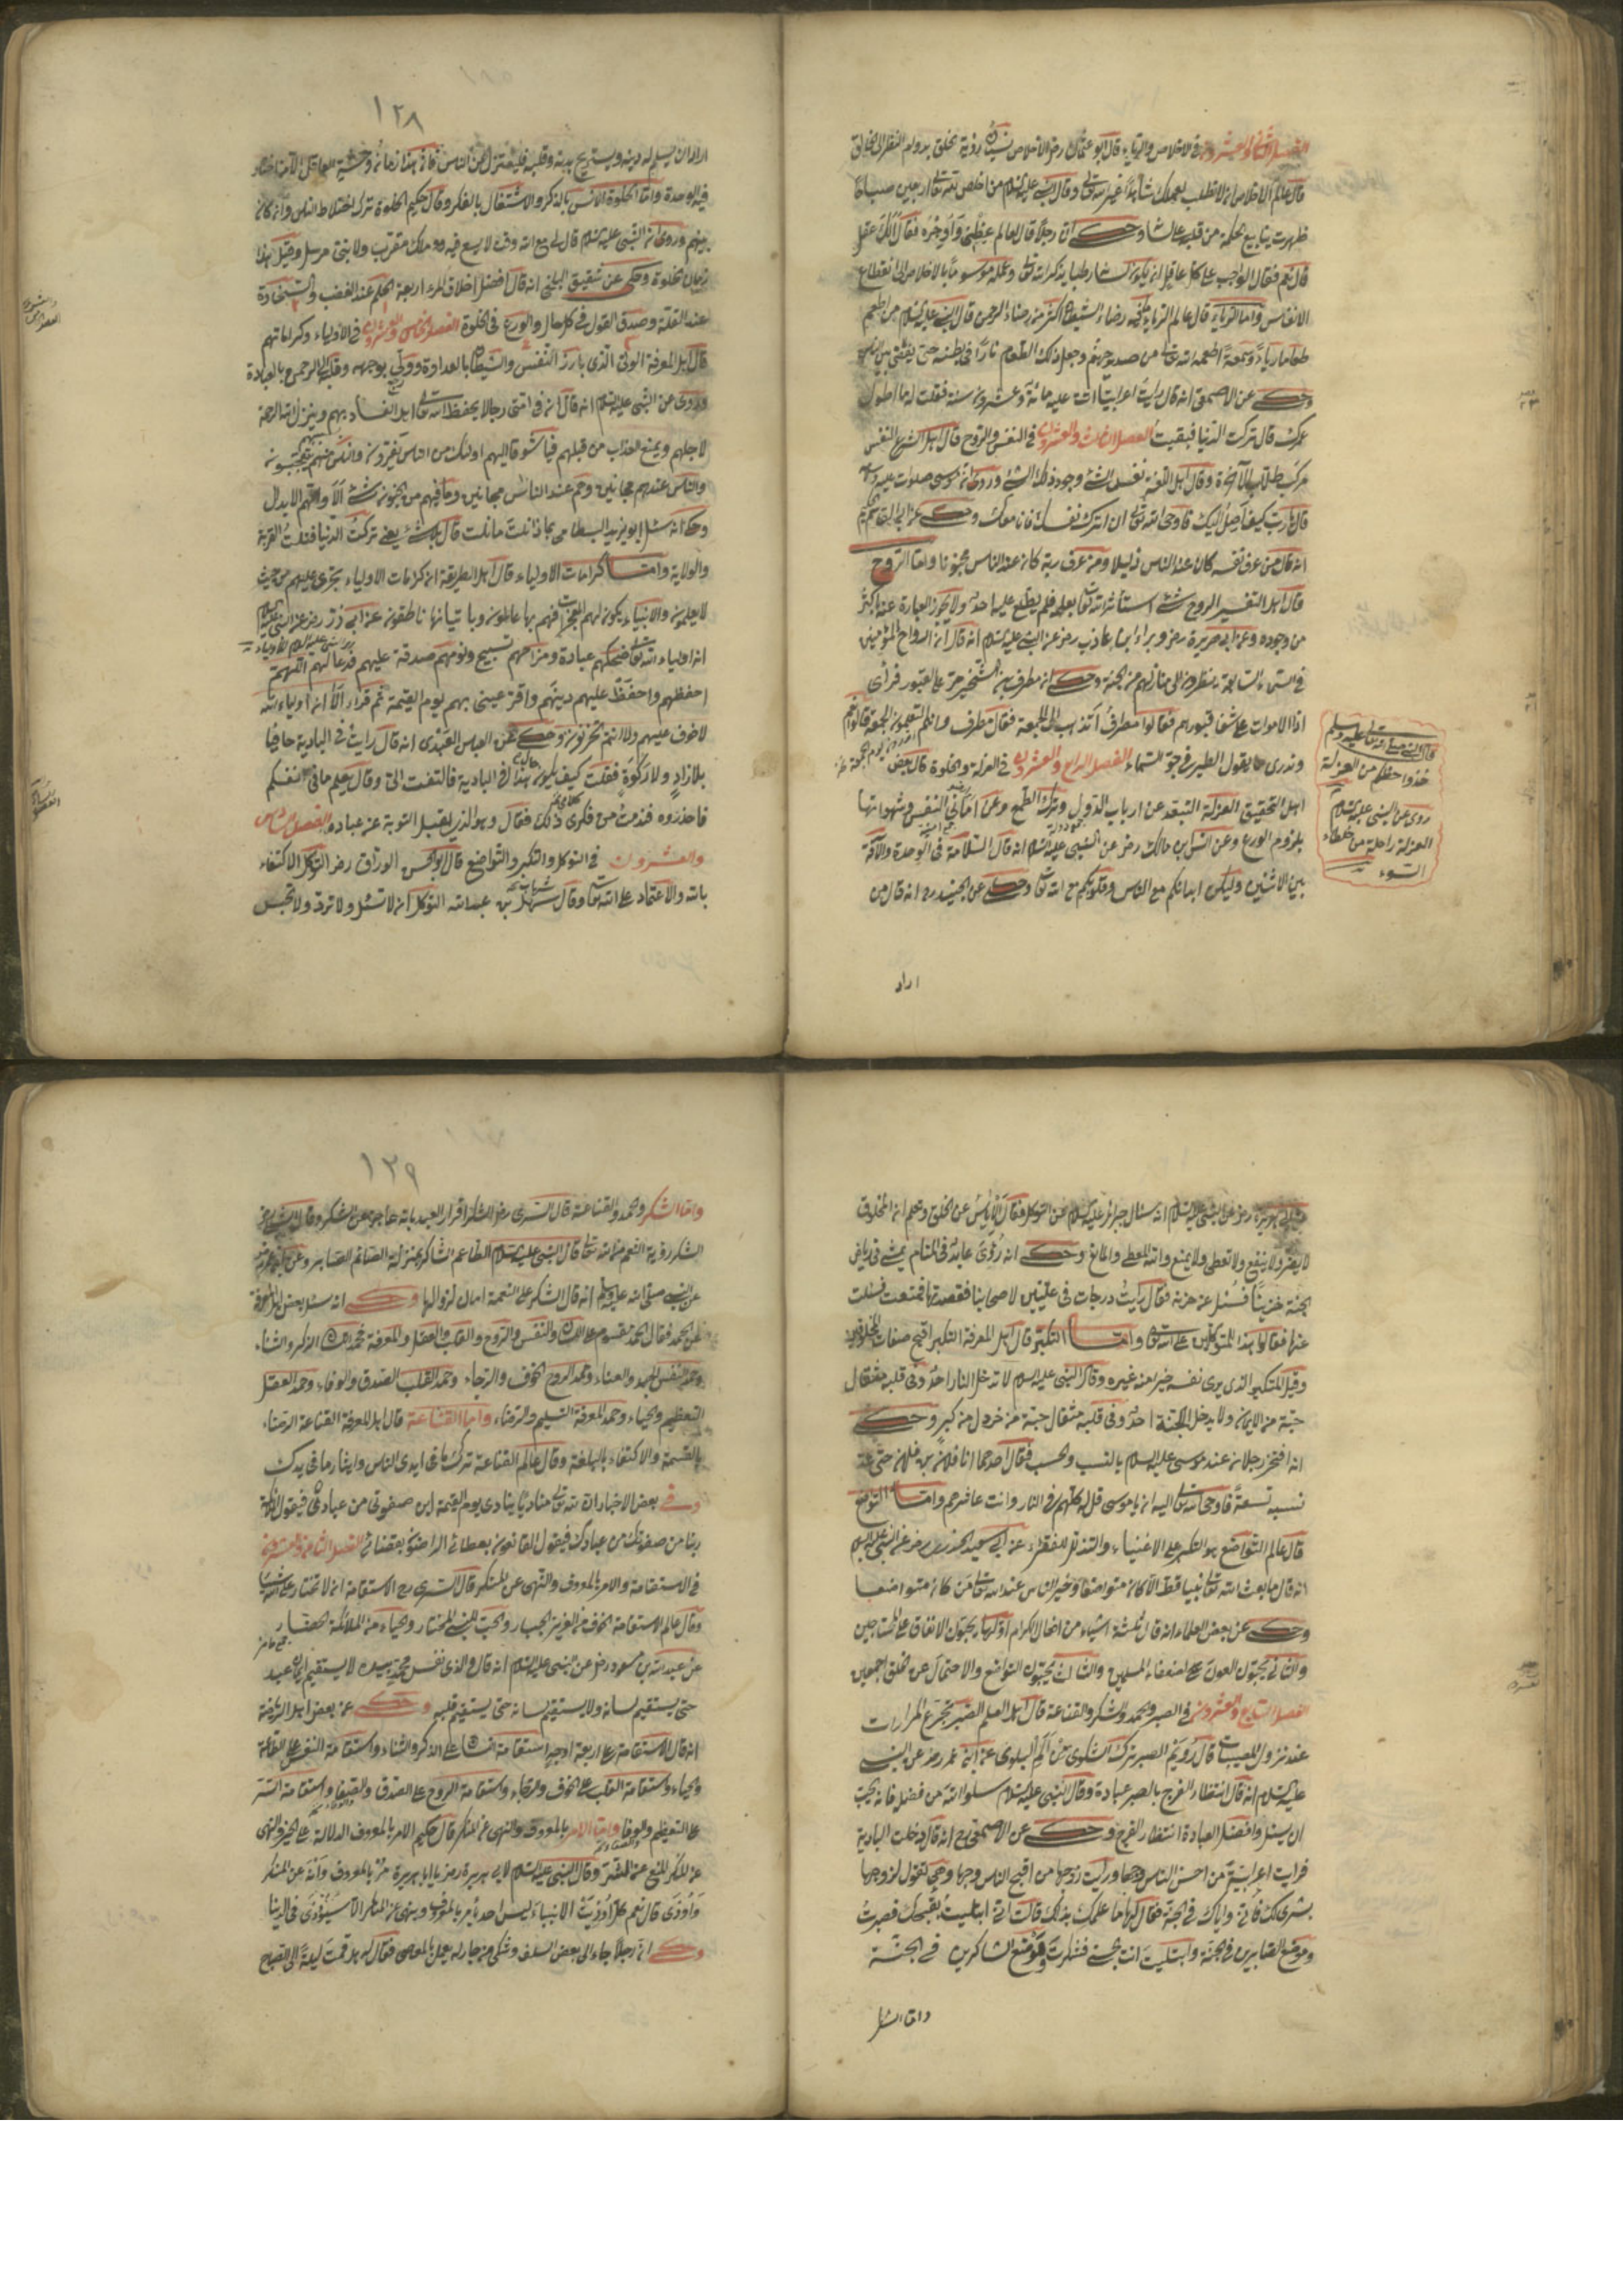 الفصل الثاني والعشرون في الاخلاص والرياء قال ابو عثمان رض الاخلاص نسيان رؤية الخلق بدوام النظر الى الخالق
قال عالم الاخلاص ان لا تطلب بعملك شاهدا غير الله تعالى وقال النبي عليه السلام من اخلص لله تعالى اربعين صباحا
ظهرت ينابيع الحكمة من قلبه على لسانه وحكى ان رجلا قال لعالم عظني وأوجزه فقال ألك عقل
قال نعم فقال الواجب على كل عاقل ان يكون لسانه رطبا بذكر الله تعالى وعمله موسوما بالاخلاص الى انقطاع
الانفاس واما الرياء قال عالم الرياء رضاء الشيطان اكثر من رضاء الرحمن قال النبي عليه السلام من اطعم
طعاما رياء وسمعة اطعمه الله تعالى من صديد جهنم وجعل ذلك الطعام نارا في بطنه حتى يقضى بين الناس
وحكى عن الاصمعي انه قال رأيت اعرابيا اتت عليه مائة وعشرون سنة فقلت له ما اطول
عمرك قال تركت الدنيا فبقيت الفصل الثالث والعشرون في النفس والروح قال اهل الشرع النفس
مركب طلاب الآخرة وقال اهل اللغة نفس الشئ وجود ذلك الشئ وروى ان موسى صلوات الله عليه وسلم
قال يا رب كيف أصل اليك فاوحى الله تعالى ان اترك نفسك وحكى عن
انه قال من عرف نفسه كان عند الناس ذليلا ومن عرف ربه كان عند الناس مجنونا واما الروح
قال اهل التفسير الروح شئ استأثر الله تعالى بعلمه فلم يطلع عليه احد ولا يجوز العبارة عنه باكثر
من وجوده وعن ابي هريرة رض وبراء ابن عاذب رض عن النبي عليه السلام انه قال ان ارواح المؤمنين
في السماء السابعة ينظرون الى منازلهم في الجنة وحكى ان مطرف بن الشخير مر على القبور فرأى
اذا الاموات على شفا قبورهم فقالوا مطرف أتذهب الى الجمعة فقال مطرف وانتم تعلمون الجمعة قالوا نعم
وندري ما يقول الطير في جو السماء الفصل الرابع والعشرون في العزلة والخلوة قال بعض
اهل التحقيق العزلة التبعد عن ارباب الدول وترك الطمع وعن اماني النفس وشهواتها
بلزوم الورع وعن انس بن مالك رض عن النبي عليه السلام انه قال السلامة في الوحدة والآفة
بين الاثنين وليكن ابدانكم مع الناس وقلوبكم مع الله تعالى وحكى عن الجنيد رح انه قال من
اراد
قال النبي صلى الله تعالى عليه وسلم
خذوا حظكم من العزلة
روى عن النبي عليه السلام
العزلة راحلة من خلطاء
السوء
١٢٨
اراد ان يسلم له دينه ويستريح بدنه وقلبه فليعتزل عن الناس فان هذا زمان وحشية العاقل من اختار
فيه الوحدة واما الخلوة الانس بالذكر والاشتغال بالفكر وقال حكيم الخلوة ترك اختلاط الناس وان كان
بينهم وروى ان النبي عليه السلام قال لي مع الله وقت لا يسع فيه ملك مقرب ولا نبي مرسل وقيل هذا
زمان الخلوة وحكى عن شقيق البلخي انه قال افضل اخلاق المرء اربعة الحلم عند الغضب والسخاوة
عند القلة وصدق القول في كل حال والورع في الخلوة الفصل الخامس والعشرون في الاولياء وكراماتهم
قال اهل المعرفة الولي الذي بارز النفس والشيطان بالعداوة وولى بوجهه وقلبه الى الرحمن بالعبادة
وروى عن النبي عليه السلام انه قال ان في امتي رجالا يحفظ الله تعالى اهل الفساد بهم وينزل الله الرحمة
لاجلهم ويمنع العذاب من قبلهم فيا شوقا اليهم اولئك من الناس يفرون والناس منهم يتعجبون
والناس عندهم مجانين وهم عند الناس مجانين وما فيهم من الجنون شئ ألا وانهم الابدال
وحكى انه سئل ابو يزيد البسطامي بماذا نلت ما نلت قال بلا شئ يعني تركت الدنيا فنلت القربة
والولاية واما كرامات الاولياء قال اهل الطريقة ان كرامات الاولياء تجري عليهم من حيث
لا يعلمون والانبياء يكون لهم المعجزات فهم بها عالمون وباتيانها ناطقون عن ابي ذر رض عن النبي عليه السلام
ان اولياء الله تعالى ضحكهم عبادة ومزاحهم تسبيح ونومهم صدقة عليهم فدعا لهم اللهم
احفظهم واحفظ عليهم دينهم واقر عيني بهم يوم القيمة ثم قرأ ألا ان اولياء الله
لا خوف عليهم ولا هم يحزنون وحكى عن العباس العبدي انه قال رايت في البادية حافيا
بلا زاد ولا ركوة فقلت كيف يكون هذا في البادية فالتفت الي وقال يعلم ما في انفسكم
فاحذروه فندمت من فكري ذلك فقال وهو الذي يقبل التوبة عن عباده الفصل السادس
والعشرون في التوكل والتكبر والتواضع قال ابو الحسن الوراق رض التوكل الاكتفاء
بالله والاعتماد على الله تعالى وقال سهل بن عبد الله التوكل ان لا تسئل ولا ترد ولا تحبس
عن ابي هريرة رض عن النبي عليه السلام انه سئال جبرائيل عليه السلام عن التوكل فقال الأياس عن الخلق وتعلم ان المخلوق
لا يضر ولا ينفع ولا يعطي ولا يمنع والله المعطي والمانع وحكى انه رؤي عابد في المنام يمشي في رياض
الجنة حزينا فسئل عن حزنه فقال رأيت درجات في عليين لاصحابنا فقصدتها فمنعت فسئلت
عنها فقالوا هذا للمتوكلين على الله تعالى واما التكبر قال اهل المعرفة التكبر اقبح صفات المخلوقين
وقيل المتكبر الذي يرى نفسه خيرا من غيره وقال النبي عليه السلام لا تدخل النار احد وفي قلبه مثقال
حبة من الايمان ولا يدخل الجنة احد وفي قلبه مثقال حبة من خردل من كبر وحكى
انه افتخر رجلان عند موسى عليه السلام بالنسب والحسب فقال احدهما انا فلان بن فلان حتى عد
نسبه تسعة فاوحى الله تعالى اليه ان يا موسى قل له كلهم في النار وانت عاشرهم واما التواضع
قال عالم التواضع هو التكبر على الاغنياء والتذلل للفقراء عن ابي سعيد الخدري رض عن النبي عليه السلام
انه قال ما بعث الله تعالى نبيا قط الا كان متواضعا وخير الناس عند الله تعالى من كان متواضعا
وحكى عن بعض العلماء انه قال ثلثة اشياء من افعال الكرام اولها يحبون الانفاق على المحتاجين
والثاني يحبون العون على ضعفاء المسلمين والثالث يحبون التواضع والاحتمال عن الخلق اجمعين
الفصل السابع والعشرون في الصبر والحمد والشكر والقناعة قال اهل العلم الصبر تجرع المرارات
عند نزول المصيبات قال رويم الصبر ترك الشكوى من ألم البلوى عن ابن عمر رض عن النبي
عليه السلام انه قال انتظار الفرج بالصبر عبادة وقال النبي عليه السلام سلوا الله من فضله فانه يحب
ان يسئل وافضل العبادة انتظار الفرج وحكى عن الاصمعي رح انه قال دخلت البادية
فرايت اعرابية من احسن الناس وجها ورايت زوجها من اقبح الناس وجها وهي تقول لزوجها
بشرى لك فاني واياك في الجنة فقال لها ما علمك بذلك قالت اني ابتليت بقبحك فصبرت
وموضع الصابرين في الجنة وابتليت انت بحسني فشكرت وموضع الشاكرين في الجنة
واما الشكر
١٢٩
واما الشكر والحمد والقناعة قال السري رض الشكر اقرار العبد بانه عاجز عن الشكر وقال
الشكر رؤية النعم من الله تعالى قال النبي عليه السلام الطاعم الشاكر بمنزلة الصائم الصابر وعن
عن النبي صلى الله عليه وسلم انه قال الشكر على النعمة امان لزوالها وحكى انه سئل بعض اهل المعرفة
عن الحمد فقال الحمد مقسوم على اللسان والنفس والروح والقلب والعقل والمعرفة فحمد اللسان الذكر والثناء
وحمد النفس الجهد والعناء وحمد الروح الخوف والرجاء وحمد القلب الصدق والوفاء وحمد العقل
التعظيم والحياء وحمد المعرفة التسليم والرضاء واما القناعة قال اهل المعرفة القناعة الرضاء
بالقسمة والاكتفاء بالبلغة وقال عالم القناعة ترك ما في ايدي الناس وايثار ما في يدك
وفي بعض الاخبار ان لله تعالى مناديا ينادي يوم القيمة اين صفوتي من عبادي فيقول الملائكة
ربنا من صفوتك من عبادك فيقول القانعون بعطائي الراضون بقضائي الفصل الثامن والعشرون
في الاستقامة والامر بالمعروف والنهي عن المنكر قال السري رح الاستقامة ان لا تختار على الله شيئا
وقال عالم الاستقامة الخوف من العزيز الجبار والحب للنبي المختار والحياء من الملائكة الحضار
عن عبد الله بن مسعود رض عن النبي عليه السلام انه قال والذي نفس محمد بيده لا يستقيم ايمان عبد
حتى يستقيم لسانه ولا يستقيم لسانه حتى يستقيم قلبه وحكى عن بعض اهل
انه قال الاستقامة على اربعة اوجه استقامة اللسان على الذكر والثناء واستقامة النفس على الطاعة
والحياء واستقامة القلب على الخوف والرجاء واستقامة الروح على الصدق والصفاء واستقامة السر
على التعظيم والوفا واما الامر بالمعروف والنهي عن المنكر قال حكيم الامر بالمعروف الدلالة على الخير والنهي
عن المنكر المنع عن الشر وقال النبي عليه السلام لابي هريرة رض يا ابا هريرة مر بالمعروف وانه عن المنكر
وأوذى قال نعم كما أوذيت الانبياء ليس احد يأمر بالمعروف وينهى عن المنكر الا سيؤذى في الدنيا
وحكى ان رجلا جاء الى بعض السلف وشكى من جار له يعمل بالمعاصي فقال له هل قمت ليلة الى الصباح